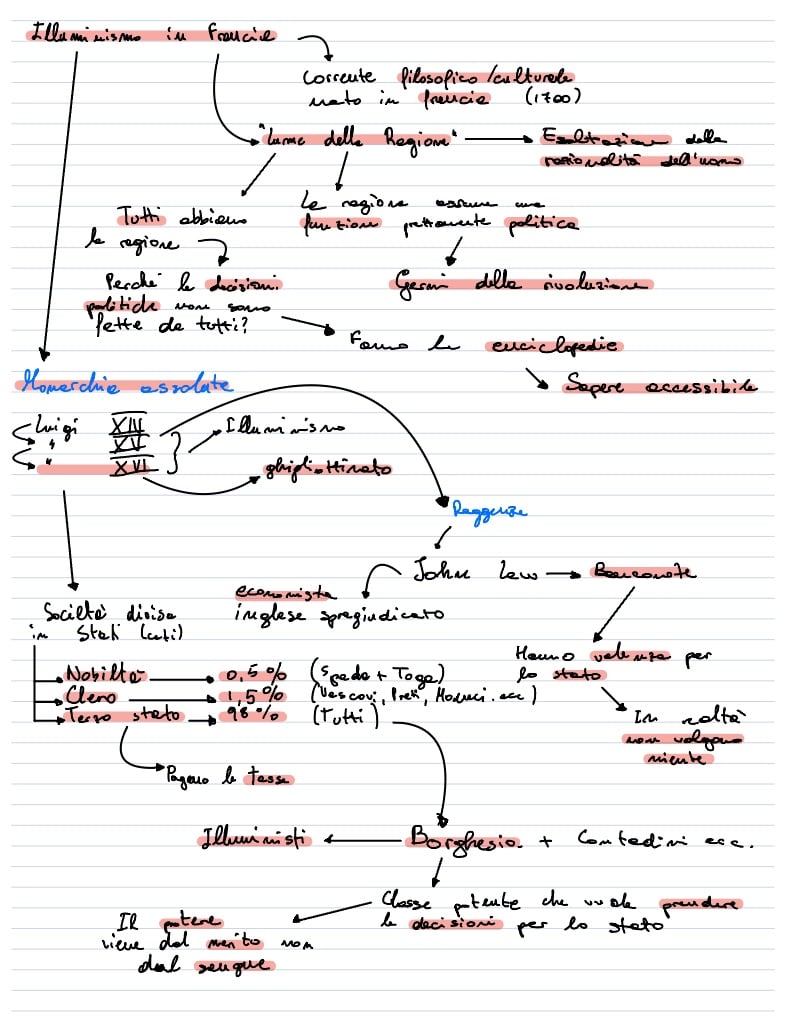 Illuminismo in Francia
Corrente filosofico/culturale
nato in francia (1700)
"Lume della Ragione"
Esaltazione della
razionalità dell'uomo
Tutti abbiamo
la ragione
La ragione assume una
funzione prettamente politica
Perché le decisioni
politiche non sono
fatte da tutti?
Germi della rivoluzione
Fanno le enciclopedie
Sapere accessibile
Monarchie assolute
Luigi XIV
" XV
" XVI
Illuminismo
ghigliottinato
Reggenza
John Law
Banconote
economista
inglese spregiudicato
Società divisa
in Stati (ceti)
Hanno valenza per
lo stato
Nobiltà 0,5% (Spada + Toga)
Clero 1,5% (Vescovi, Preti, Monaci. ecc)
Terzo stato 98% (Tutti)
In realtà
non valgono
niente
Pagano le tasse
Illuministi
Borghesia + Contadini ecc.
Classe potente che vuole prendere
le decisioni per lo stato
Il potere
viene dal merito non
dal sangue